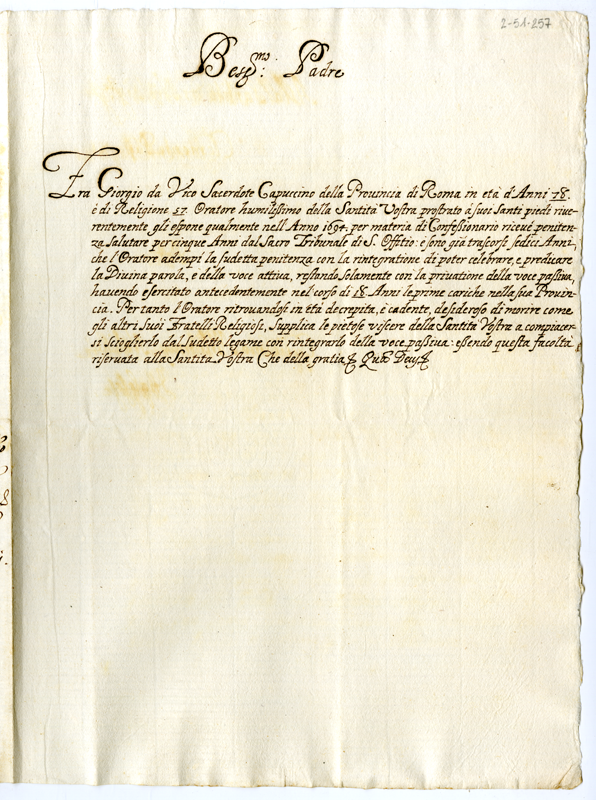 2-51-257
Beat.mo Padre
Fra Giorgio da Vico Sacerdote Capuccino della Provincia di Roma in età d'Anni 78.
è di Religione 57. Oratore humilissimo della Santità Vostra prostrato à suoi Santi piedi riue-
rentemente gli espone qualmente nell'Anno 1694. per materia di Confessionario riceuè peniten-
za salutare per cinque Anni dal Sacro Tribunale di S. Offitio: e sono già trascorsi sedici Anni,
che l'Oratore adempì la sudetta penitenza con la rintegratione di poter celebrare, e predicare
la Diuina parola, e della voce attiua, restando solamente con la priuatione della voce passiua,
hauendo esercitato antecedentemente nel corso di 18 Anni le prime cariche nella sua Prouin-
cia. Per tanto l'Oratore ritrouandosi in età decrepita, è cadente, desideroso di morire come
gli altri Suoi Fratelli Religiosi, Supplica le pietose viscere della Santità Vostra a compiacer-
si scioglierlo dal Sudetto legame con rintegrarlo della voce passiua: essendo questa facoltà
riseruata alla Santità Vostra Che della gratia Quam Deus